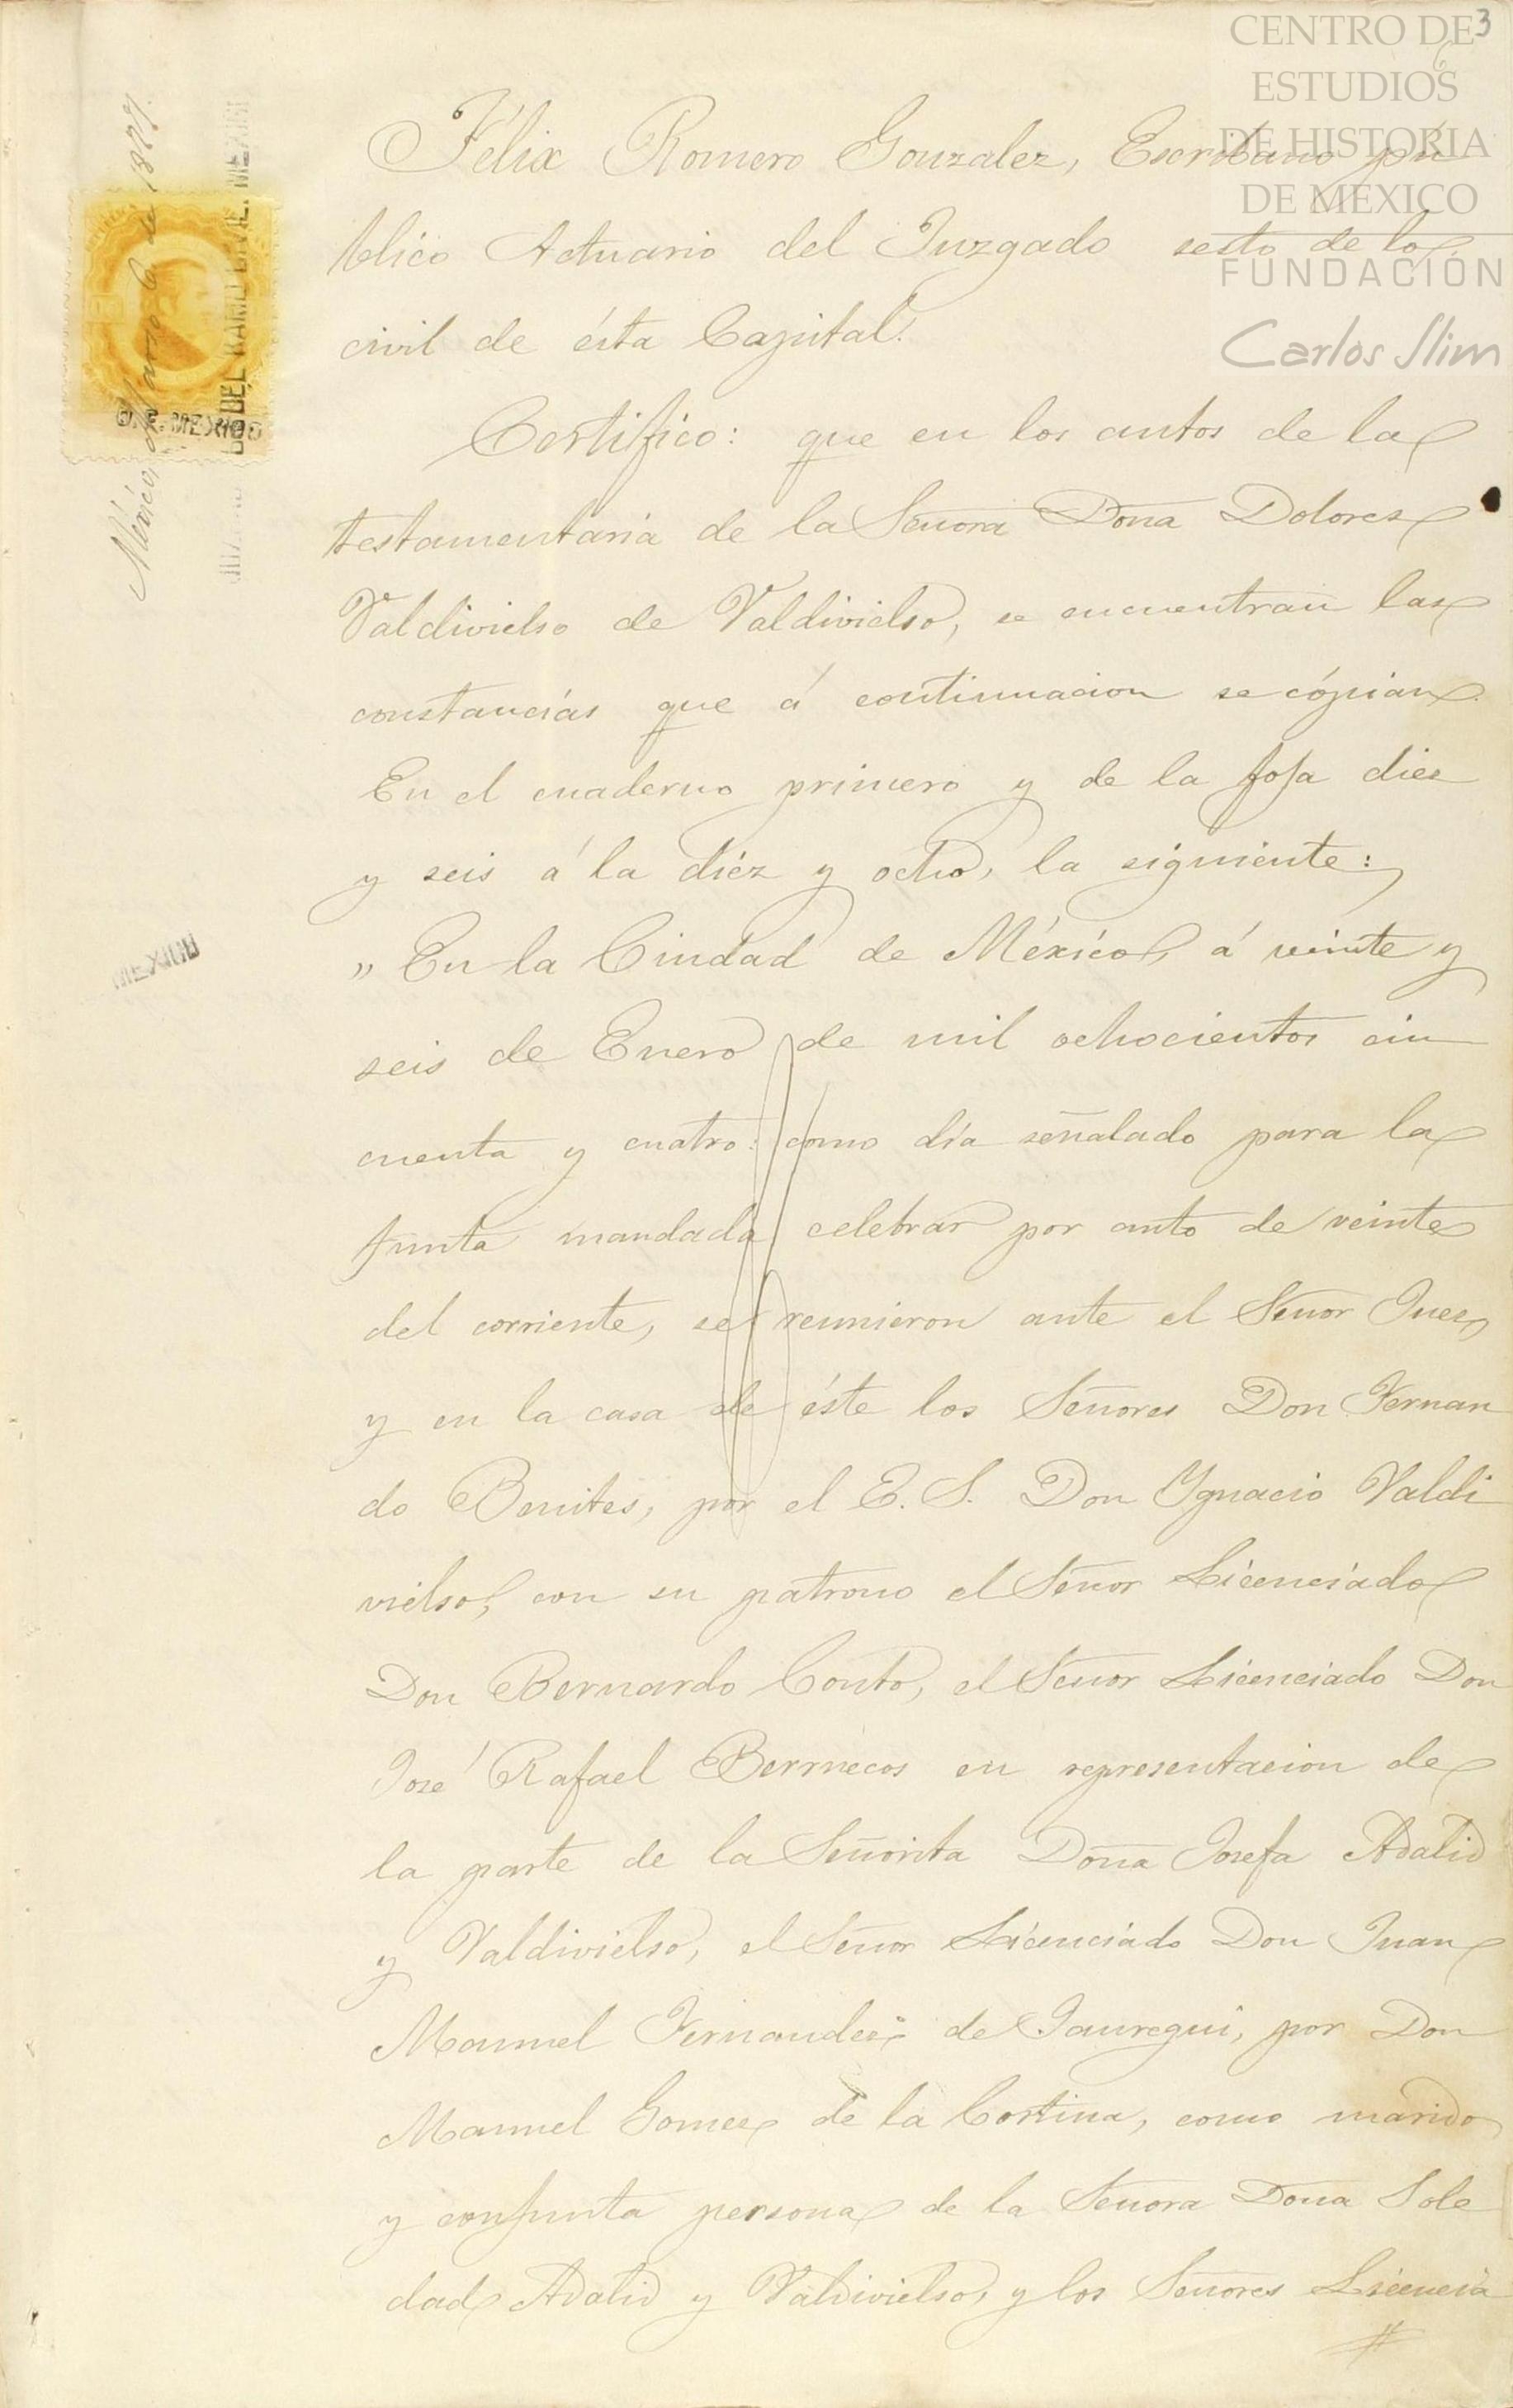 3
CENTRO DE
ESTUDIOS
DE HISTORIA
DE MÉXICO
FUNDACIÓN
Carlos Slim
Félix Romero Gonzalez, Escribano pú
blico Actuario del Juzgado sesto de lo
civil de ésta Capital.
Certifico: que en los autos de la
testamentaría de la Señora Doña Dolores
Valdivielso de Valdivielso, se encuentran las
constancias que á continuacion se cópian.
En el cuaderno primero y de la foja diez
y seis á la diéz y ocho, la siguiente:
„ En la Ciudad de México, á veinte y
seis de Enero de mil ochocientos cin
cuenta y cuatro: como día señalado para la
junta mandada celebrar por auto de veinte
del corriente, se reunieron ante el Señor Juez,
y en la casa de éste los Señores Don Fernan
do Benites, por el E. S. Don Ygnacio Valdi
vielso, con su patrono el Señor Licenciado
Don Bernardo Couto, el Señor Licenciado Don
José Rafael Berruecos en representacion de
la parte de la Señorita Doña Josefa Adalid
y Valdivielso, el Señor Licenciado Don Juan
Manuel Fernandez de Jauregui, por Don
Manuel Gomez de la Cortina, como marido
y conjunta persona de la Señora Doña Sole
dad Adalid y Valdivielso, y los Señores Licencia
México, Marzo 6 de 1877.
MEXICO
MEXICO